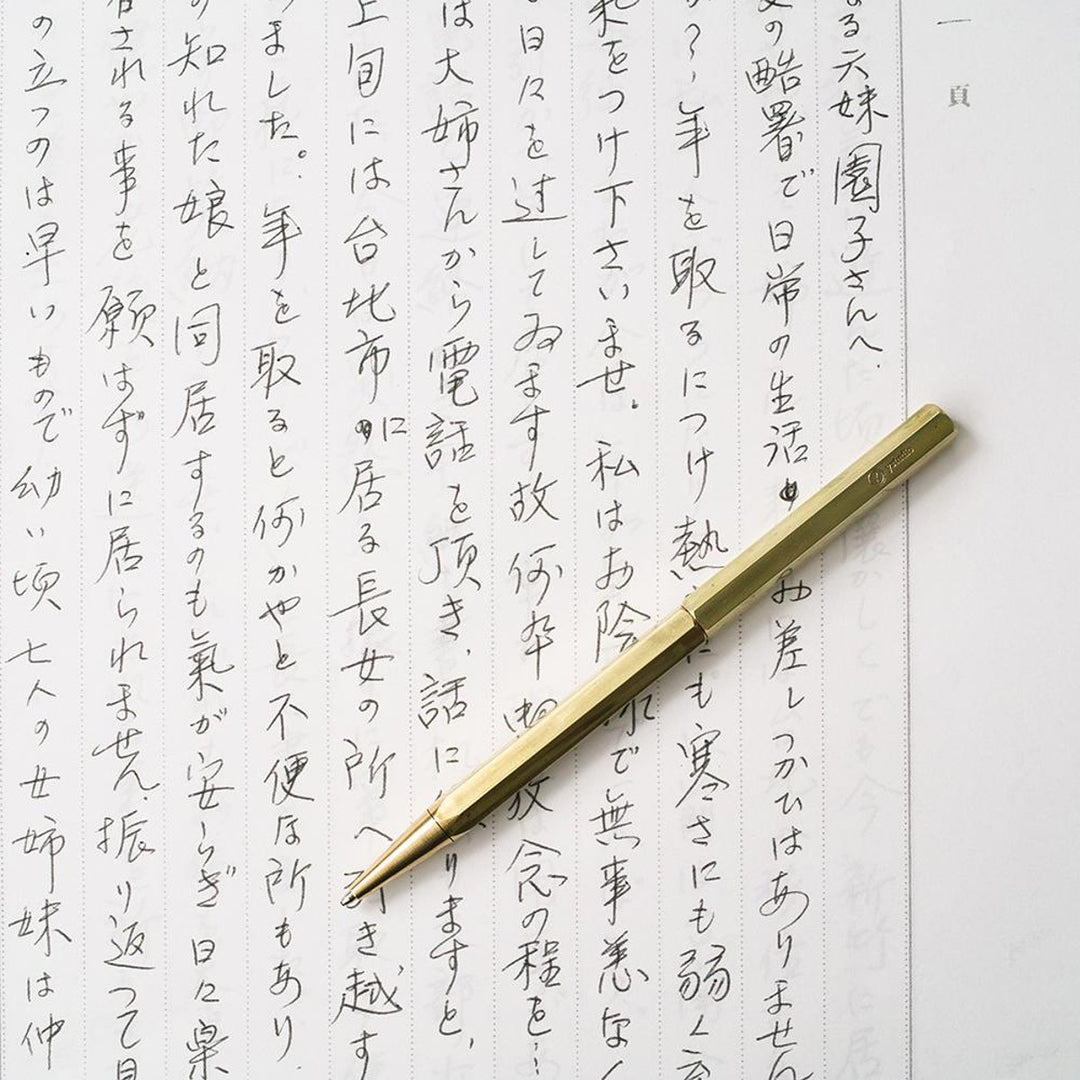 一頁
る六妹園子さんへ、
の酷暑で日常の生活 お差しつかひはありません
？、年を取るにつけ熱 にも寒さにも弱く
をつけ下さいませ。私はお陰 で無事恙なく
日々を過してゐます故何卒 放念の程を…
は大姉さんから電話を頂き、話に りますと、
上旬には台北市に居る長女の所へ引き越す
ました。年を取ると何かやと不便な所もあり、
知れた娘と同居するのも氣が安らぎ日々楽
される事を願はずに居られません、振り返つて見
の立つのは早いもので幼い頃七人の女姉妹は仲